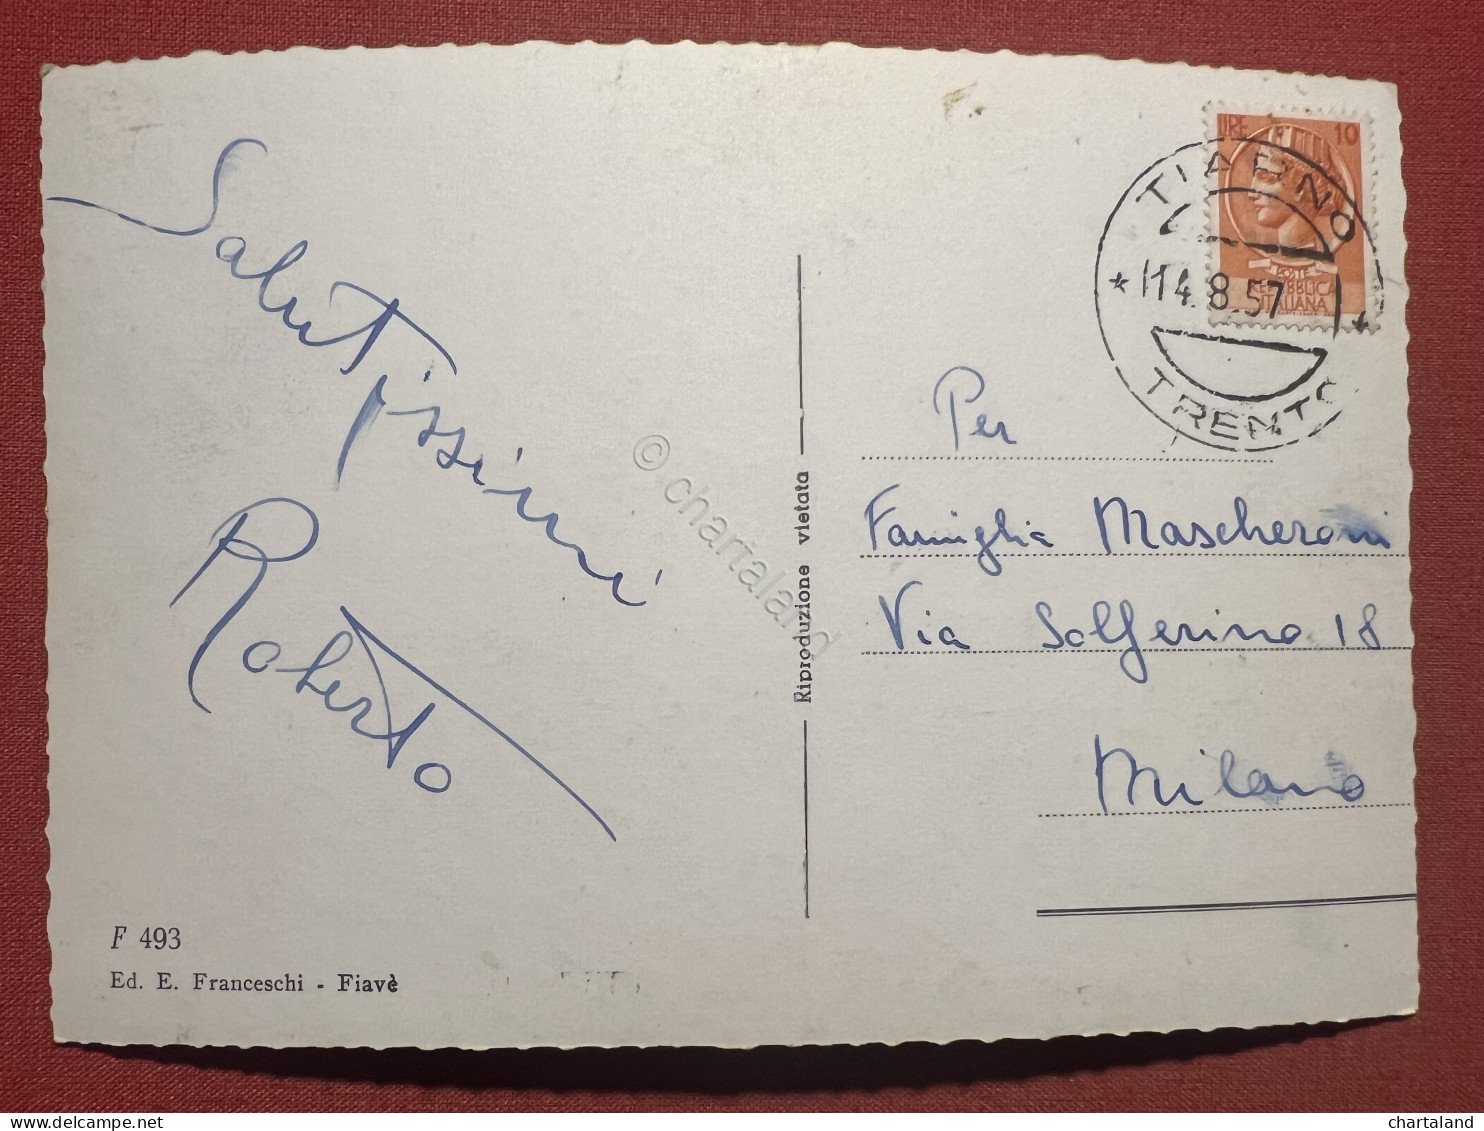 Salutissimi
Roberto
F 493
Ed. E. Franceschi - Fiavè
Riproduzione vietata
LIRE 10
POSTE
REPUBBLICA
ITALIANA
TIARNO
14.8.57
TRENTO
Per
Famiglia Mascheroni
Via Solferino 18
Milano
© chartaland
chartaland